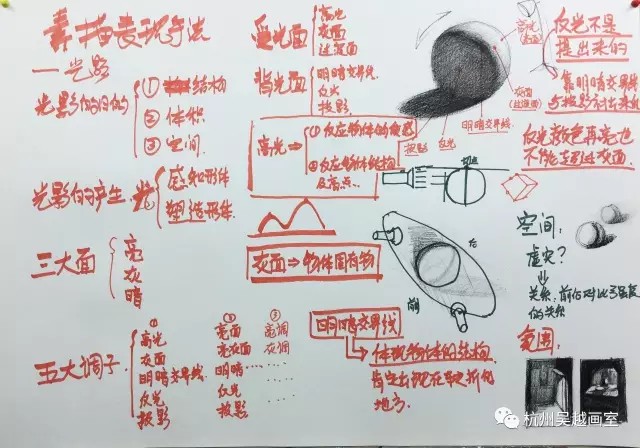 素描表现手法
一光影
光影的目的
① 结构
② 体积
③ 空间.
光影的产生.光
感知形体
塑造形体.
三大面
亮
灰
暗
五大调子
①
高光
灰面
明暗交界线.
反光
投影
②
亮面
亮灰面
明暗…
反光
投影
③
亮调
灰调
受光面
高光
灰面
过渡面
背光面
明暗交界线.
反光
投影
高光⇒
①反应物体的质感
②反应物体结构
及高点..
灰面⇒物体固有物
明暗交界线
体现物体的结构
肯定出现在转折的
地方.
高光
灰面
(过渡面)
明暗交界线.
反光
投影
后
前
反光不是
提出来的
靠明暗交界线
与投影衬出来的
反光颜色再亮也
不能亮过灰面
空间:
虚实?
关系,前后对比了强度
的关系
氛围:
杭州吴越画室